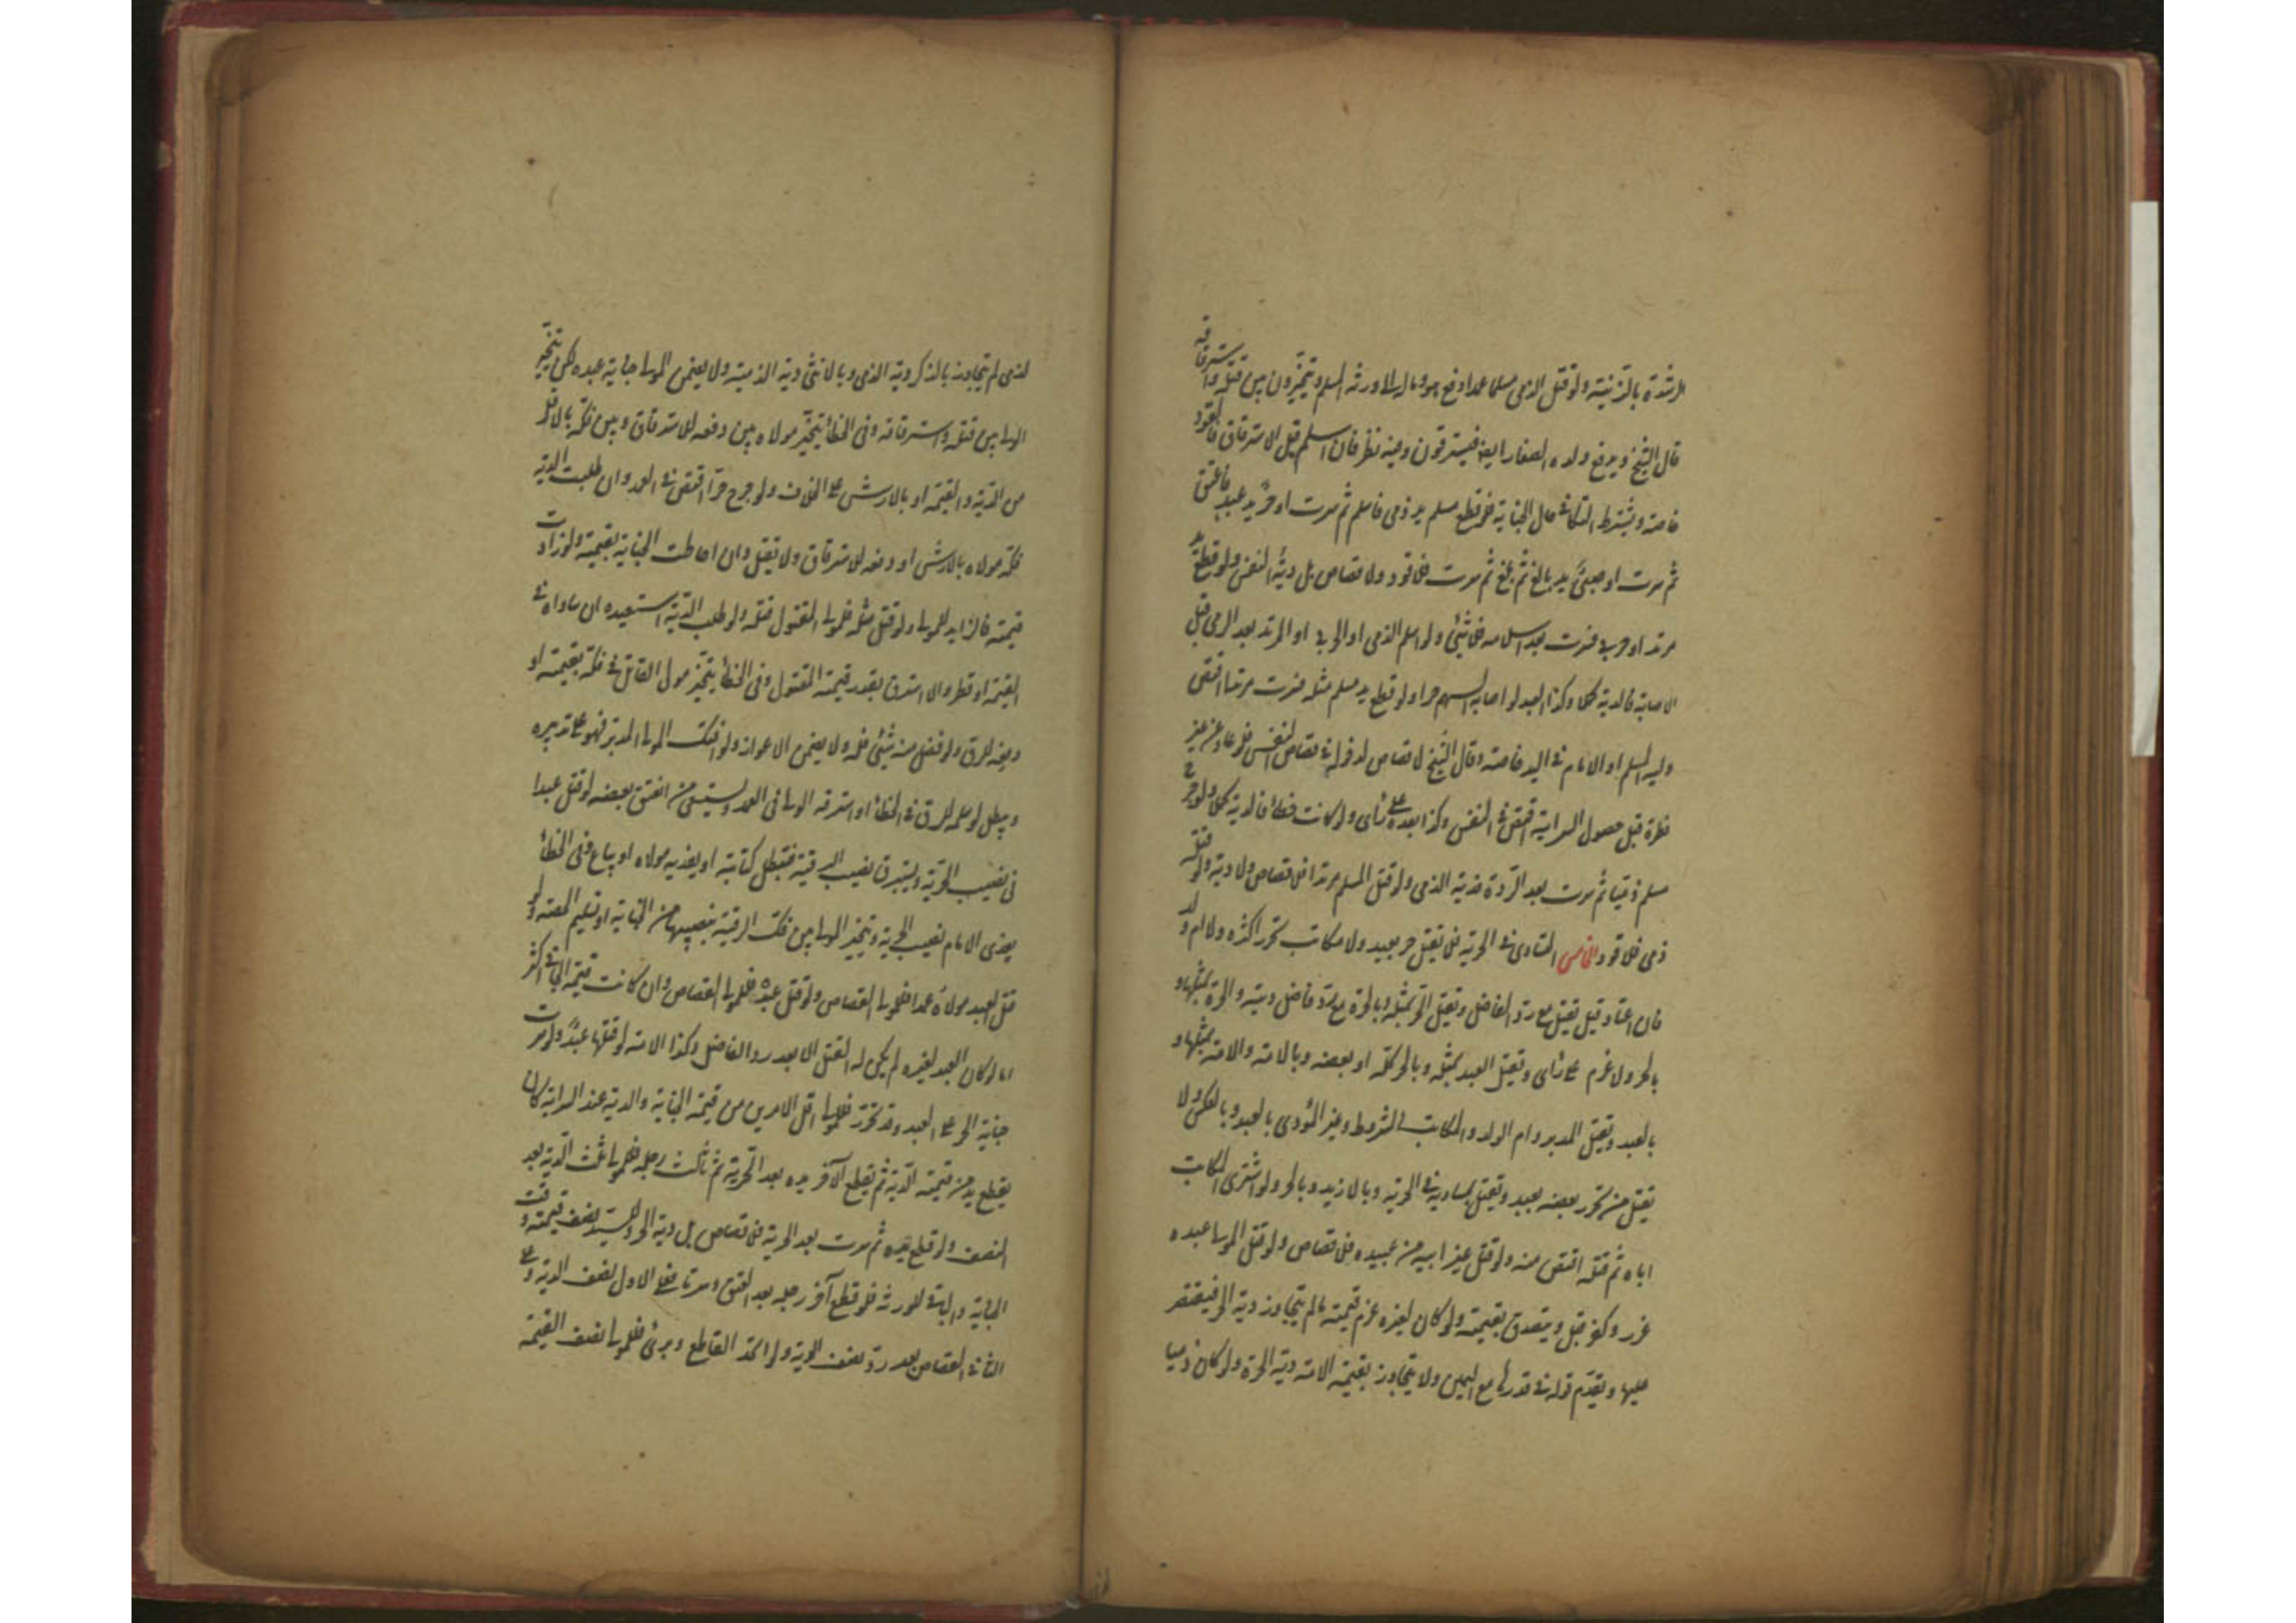 لرشدة بالزنية ولو قتل الذمي مسلما عمدا دفع هو وماله الى ورثة المسلم ويتخيرون بين قتله واسترقاقه
قال الشيخ ويدفع ولده الصغار ايضا فيسترقون وفيه نظر فان اسلم قبل الاسترقاق فالقود
خاصة ويشترط التكافؤ حال الجناية فلو قطع مسلم يد ذمي فاسلم ثم سرت او حر يد عبد فاعتق
ثم سرت او صبي يد بالغ ثم بلغ ثم سرت فلا قود ولا قصاص بل دية النفس ولو قطع يد
مرتد او حربي فسرت بعد اسلامه فلا شيء ولو اسلم الذمي او الحربي او المرتد بعد الرمي قبل
الاصابة فالدية كملا وكذا العبد لو اصابه السهم حرا ولو قطع يد مسلم مثله فسرت مرتدا اقتص
وليه المسلم او الامام في اليد خاصة وقال الشيخ لا قصاص لدخوله في قصاص النفس فلو عاد عن غير
فطرة قبل حصول السراية اقتص في النفس وكذا بعده على رأي ولو كانت خطأ فالدية كملا ولو جرح
مسلم ذميا ثم سرت بعد الردة فدية الذمي ولو قتل المسلم مرتدا فلا قصاص ولا دية ولو قتله
ذمي فلا قود الخامس التساوي في الحرية فلا يقتل حر بعبد ولا مكاتب تحرر اكثره ولا ام ولد
فان اعتاد قيل يقتل مع رد الفاضل ويقتل الحر بمثله وبالحرة مع رد فاضل ديته والحرة بمثلها و
بالحر ولا غرم على رأي ويقتل العبد بمثله وبالحر كله او بعضه وبالامة والامة بمثلها و
بالعبد ويقتل المدبر وام الولد والمكاتب المشروط وغير المؤدي بالعبد وبالعكس ولا
يقتل من تحرر بعضه بعبد ويقتل بمساويه في الحرية وبالازيد وبالحر ولو اشترى المكاتب
اباه ثم قتله اقتص منه ولو قتل غير ابيه من عبيده فلا قصاص ولو قتل المولى عبده
عزر وكفر قيل ويتصدق بقيمته ولو كان لغيره غرم قيمته ما لم يتجاوز دية الحر فيقتصر
عليها ويقدم قوله في قدرها مع اليمين ولا يتجاوز بقيمة الامة دية الحرة ولو كان ذميا
لذمي لم يتجاوز بالذكر دية الذمي وبالانثى دية الذمية ولا يضمن المولى جناية عبده لكن يتخير
الولي بين قتله واسترقاقه وفي الخطأ يتخير مولاه بين دفعه للاسترقاق وبين فكه بالاقل
من الدية والقيمة او بالارش على الخلاف ولو جرح حرا اقتص في العمد وان طلبت الدية
فكه مولاه بالارش او دفعه للاسترقاق ولا يقتل وان احاطت الجناية بقيمته ولو زادت
قيمته فالزايد للمولى ولو قتل مثله فلمولى المقتول قتله ولو طلب الدية استعبده ان ساواه في
القيمة او قصر والا استرق بقدر قيمة المقتول وفي الخطأ يتخير مولى القاتل في فكه بقيمته او
دفعه للرق ولو فضل منه شيء فله ولا يضمن الاعواز ولو افتك المولى المدبر فهو على تدبيره
ويبطل لو سلمه للرق في الخطأ او استرقه الولي في العمد ولا يستسعى من انعتق بعضه لو قتل عبدا
في نصيب الحرية ويسترق نصيب الرقية فتبطل كتابته او يفديه مولاه او يباع وفي الخطأ
يفدي الامام نصيب الحرية ويتخير المولى بين فك الرقية بنصيبها من الجناية او تسليم الحصة ولو
قتل العبد مولاه عمدا فللولي القصاص ولو قتل عبده فللمولى القصاص وان كانت قيمة الجاني اكثر
اما لو كان العبد لغيره لم يكن له القتل الا بعد رد الفاضل وكذا الامة لو قتلها عبد ولو سرت
جناية الحر على العبد وقد تحرر فللمولى اقل الامرين من قيمة الجناية والدية عند السراية كان
يقطع يد من قيمته الدية ثم يقطع آخر يده بعد الحرية ثم ثالث رجله فللمولى ثلث الدية بعد
النصف ولو قطع يده ثم سرت بعد الحرية فلا قصاص بل دية الحر وللسيد نصف قيمته وقت
الجناية والباقي للورثة فلو قطع آخر رجله بعد العتق وسرتا فعلى الاول نصف الدية وعلى
الثاني القصاص بعد رد نصف الدية ولو اتحد القاطع وبرئ فللمولى نصف القيمة